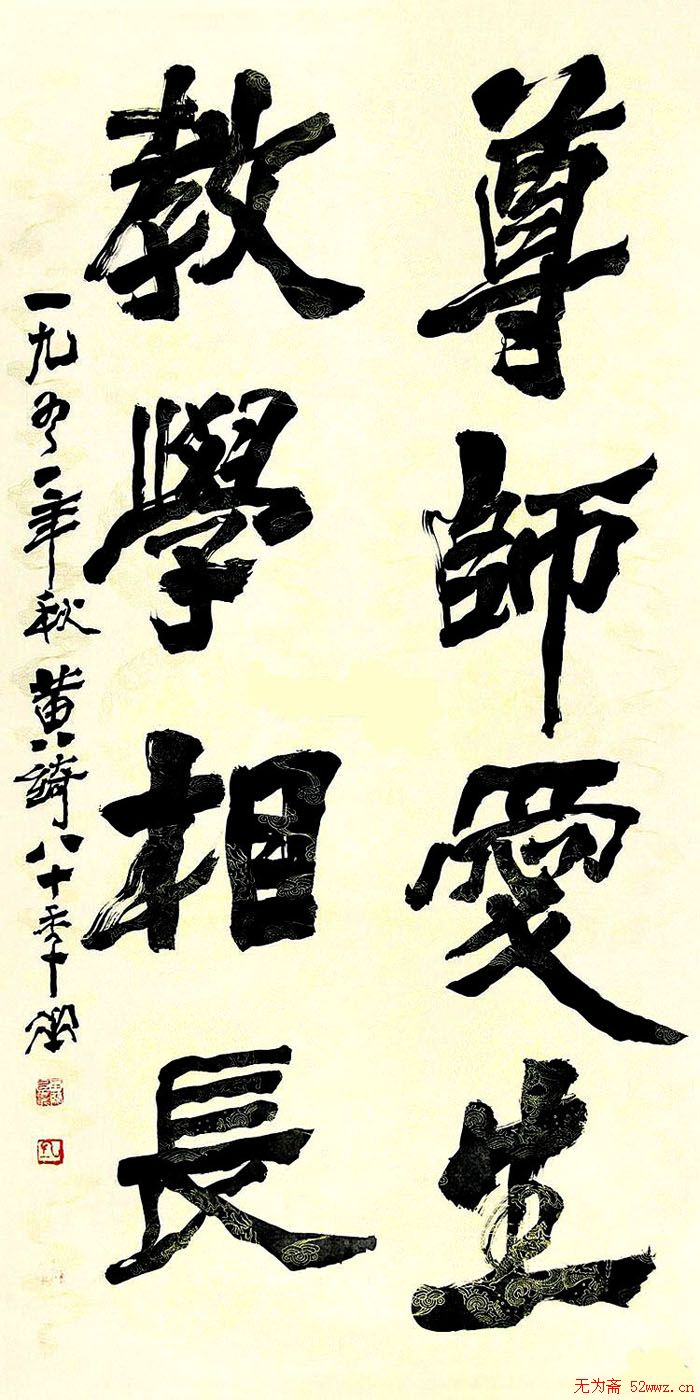 尊師愛生
教學相長
一九九一年秋 黄綺八十
无为斋 52wwz.cn